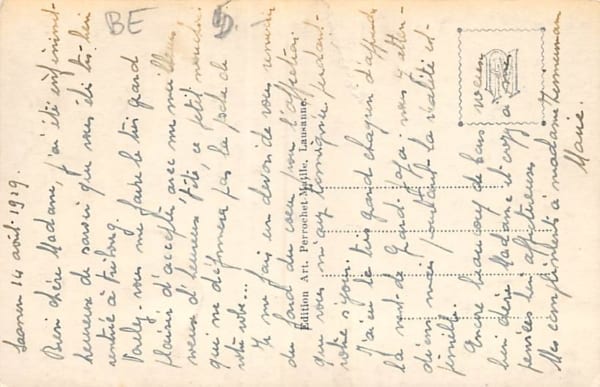 BE
5
Saanen 14 août 1929.
Bien chère Madame, j'ai été infiniment
heureuse de savoir que vous êtes très bien
rentrée à Fribourg.
Voulez-vous me faire le très grand
plaisir d'accepter, avec mes meilleurs
vœux d'heureuse fête, ce petit
qui ne déformera pas la poche de
votre robe...
Je me fais un devoir de vous remercier
du fond du cœur pour l'affection
que vous m'avez témoignée pendant
votre séjour.
J'ai eu le très grand chagrin d'apprendre
la mort de Grand-papa; nous y
mais pourtant la réalité est
pénible.
Encore beaucoup de bons vœux
bien chère Madame et croyez à mes
pensées bien affectueuses
Mes compliments à madame
Marie.
Edition Art. Perrochet-Matile, Lausanne.